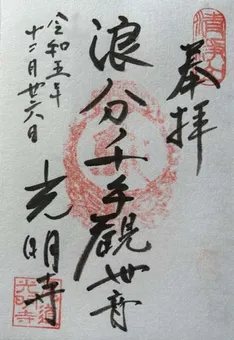 奉拝
浪分千手觀世音
光明寺
令和五年
十二月廿六日